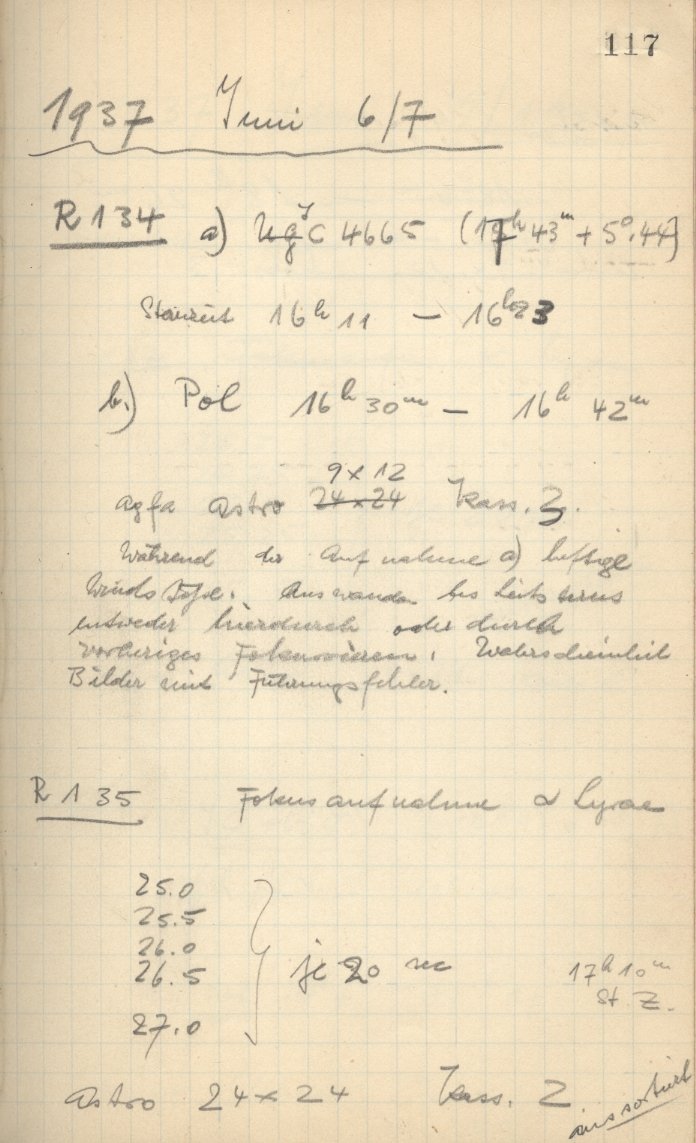 117
1937 Juni 6/7
R 134 a) JC 4665 (17h 43m + 5°.44)
Sternzeit 16h 11 — 16h 23
b.) Pol 16h 30m — 16h 42m
9 x 12
Agfa Astro 24 x 24 Kass. 3.
Während der Aufnahme a) heftige
Windstöße. Auswandern des Leitsterns
entweder hierdurch oder durch
vorheriges Fokussieren. Wahrscheinlich
Bilder mit Führungsfehler.
R 135 Fokusaufnahme α Lyrae
25.0
25.5
26.0
26.5 je 20 sec 17h 10m
St. Z.
27.0
Astro 24 x 24 Kass. 2
aussortiert